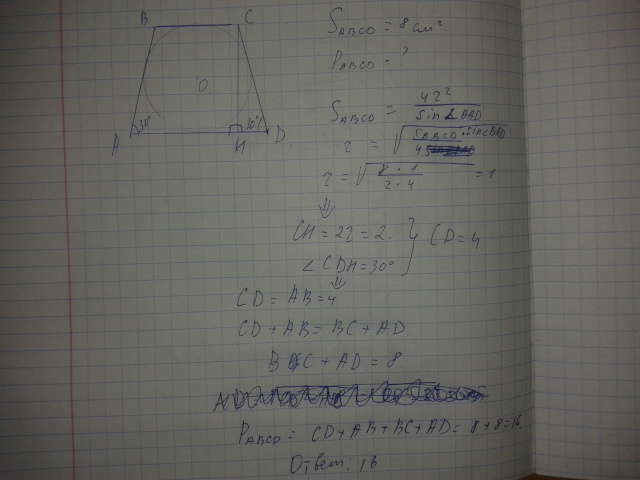 B C
O
A 30° H 30° D
S ABCD = 8 см²
P ABCD - ?
S ABCD = 4r² / sin∠BAD
r = √(S ABCD · sin∠BAD / 4)
r = √(8 · 1 / 2 · 4) = 1
⇓
CH = 2r = 2 } CD = 4
∠CDH = 30°
⇓
CD = AB = 4
CD + AB = BC + AD
BC + AD = 8
P ABCD = CD + AB + BC + AD = 8 + 8 = 16
Ответ. 16